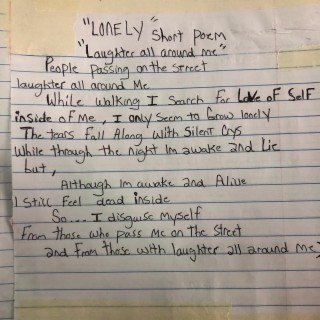 "LONELY" Short poem
"Laughter all around me"
People passing on the street
laughter all around Me
While walking I Search For Love OF Self
inside of Me, I only Seem to Grow lonely
The tears Fall Along With Silent Crys
While through the night Im awake and Lie
but,
Although Im awake and Alive
I Still Feel dead inside
So.... I disguise Myself
From those who pass Me on the Street
and From those with laughter all around me